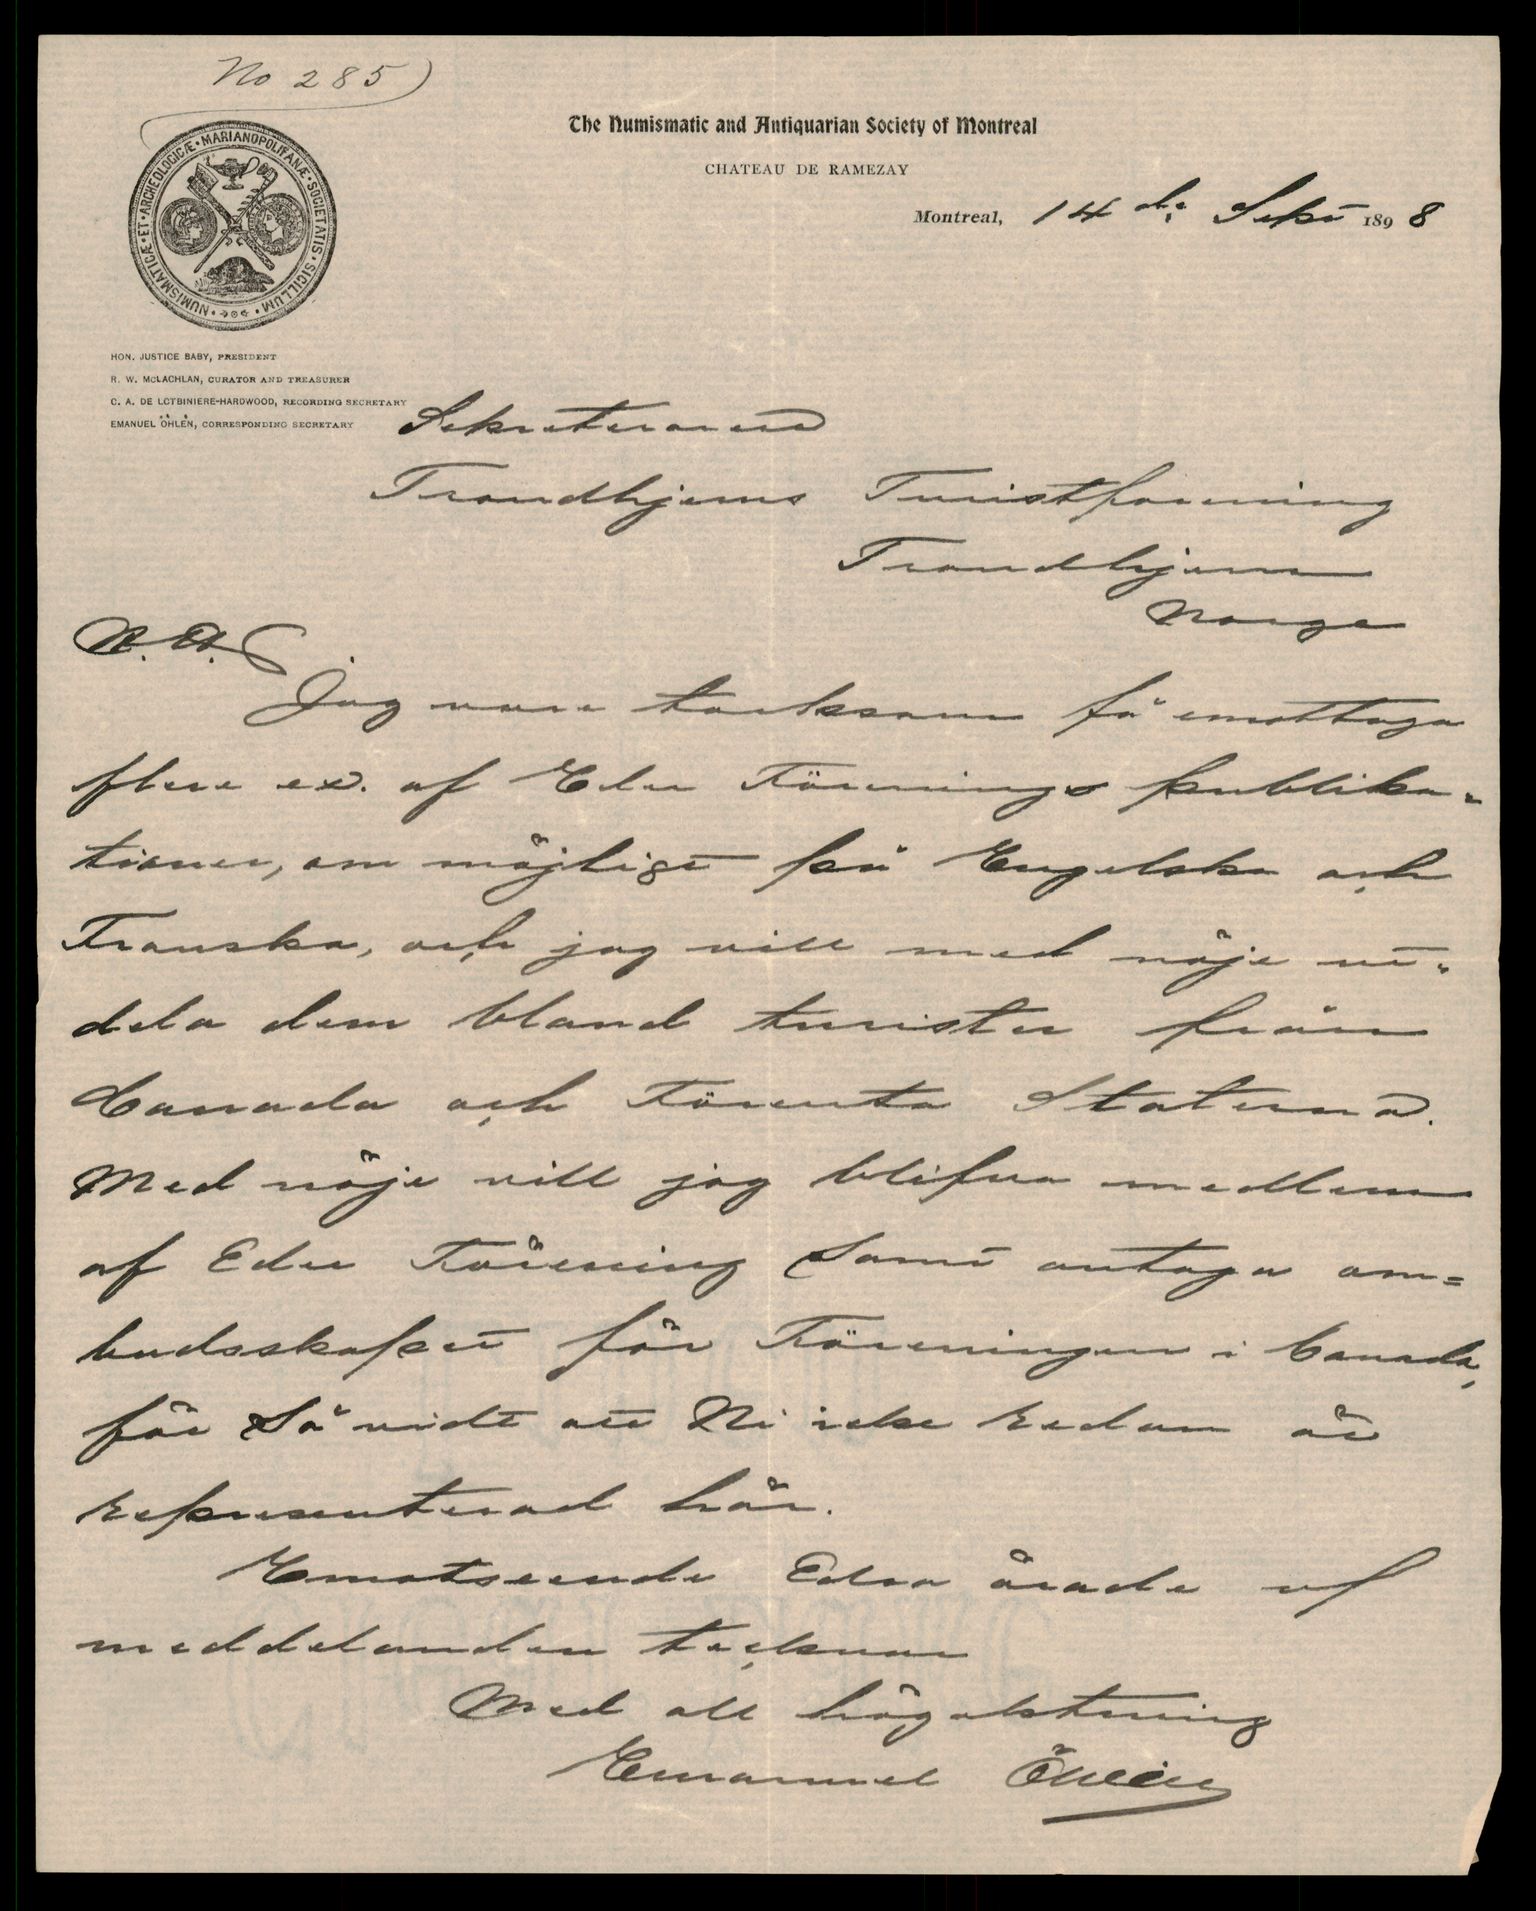 No 285)
NUMISMATICÆ·ET·ARCHEOLOGICÆ·MARIANOPOLIFANÆ·SOCIETATIS·SICILLUM
The Numismatic and Antiquarian Society of Montreal
CHATEAU DE RAMEZAY
Montreal, 14 de Sept 1898
HON. JUSTICE BABY, PRESIDENT
R. W. McLACHLAN, CURATOR AND TREASURER
C. A. DE LOTBINIERE-HARDWOOD, RECORDING SECRETARY
EMANUEL ÖHLÉN, CORRESPONDING SECRETARY
Sekreteraren
Trondhjems Turistforening
Trondhjem
Norge
Jag vore tacksam få emottaga
flere ex. af Eder Förenings publika-
tioner, om möjligt på Engelska och
Franska, och jag vill med nöje ut-
dela dem bland turister från
Canada och Förenta Staterna.
Med nöje vill jag blifva medlem
af Eder Förening samt antaga om=
budsskapet för Föreningen i Canada,
för så vidt att Ni icke redan är
representerad här.
Emotseende Edra ärade af
meddelanden tecknar
Med all högaktning
Emanuel Öhlén